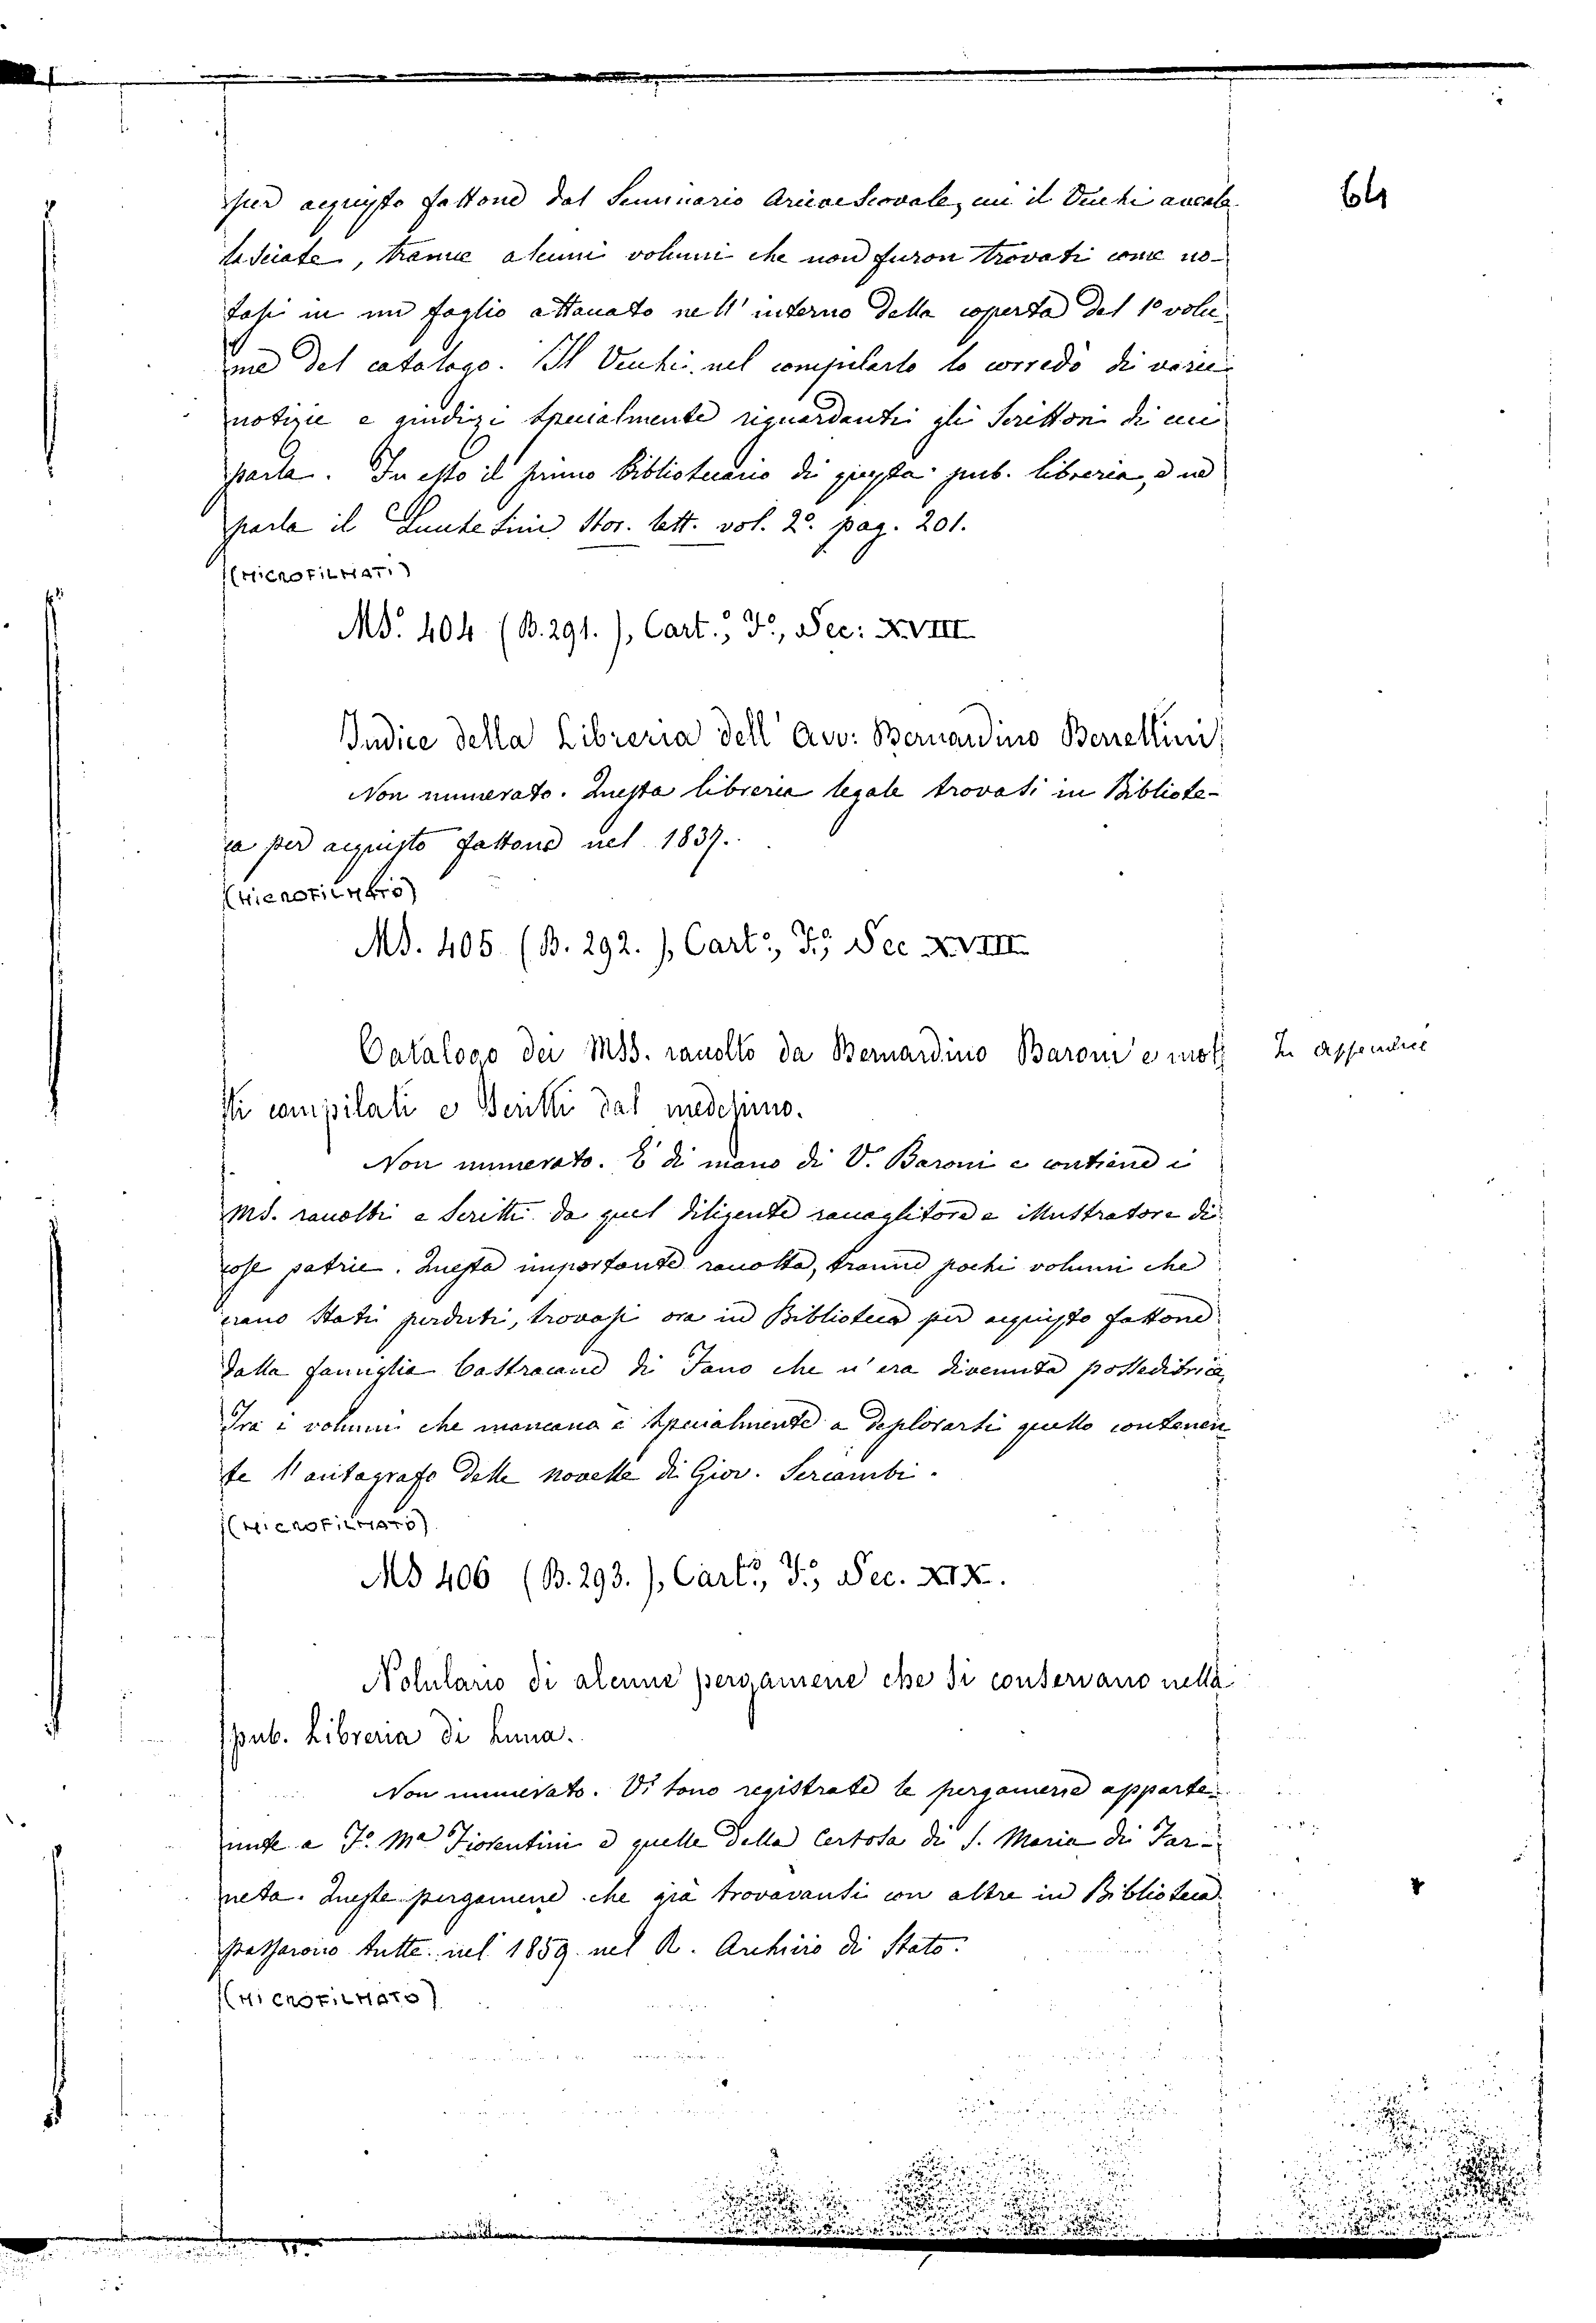 64
per acquisto fattone dal Seminario Arcivescovale, cui il Vecchi aveala
lasciate, tranne alcuni volumi che non furon trovati come no-
tasi in un foglio attaccato nell' interno della coperta del 1º volu-
me del catalogo. Il Vecchi nel compilarlo lo corredò di varie
notizie e giudizi specialmente riguardanti gli Scrittori di cui
parla. Fu esso il primo bibliotecario di questa pub. libreria, e ne
parla il Lucchesini Stor. lett. vol. 2º. pag. 201.
(MICROFILMATI)
MS. 404 (B. 291.), Cart.º, Fº, Sec: XVIII
Indice della Libreria dell' Avv: Bernardino Berrettini
Non numerato. Questa libreria legale trovasi in Bibliote-
ca per acquisto fattone nel 1837.
(MICROFILMATO)
MS. 405 (B. 292.), Cartº, Fº, Sec XVIII
Catalogo dei MSS. racolto da Bernardino Baroni e mol In Appendice
ti compilati e Scritti dal medesimo.
Non numerato. È di mano di V. Baroni e contiene i
MS. racolti e Scritti da quel diligente racoglitore e illustratore di
cose patrie. Questa importante racolta, tranne pochi volumi che
erano stati perduti, trovasi ora in Biblioteca per acquisto fattone
dalla famiglia Castracane di Fano che n' era divenuta posseditrice,
Tra i volumi che mancano è specialmente a deplorarsi quello contenen
te l'autografo delle novelle di Giov. Sercambi.
(MICROFILMATO)
MS 406 (B. 293.), Cartº, Fº, Sec. XIX.
Notulario di alcune pergamene che si conservano nella
pub. Libreria di Lucca.
Non numerato. Vi sono registrate le pergamene apparte-
nute a Fº. Mª Fiorentini e quelle della Certosa di S. Maria di Far-
neta. Queste pergamene che già trovavansi con altre in Biblioteca
passarono tutte nel 1859 nel R. Archivio di Stato.
(MICROFILMATO)